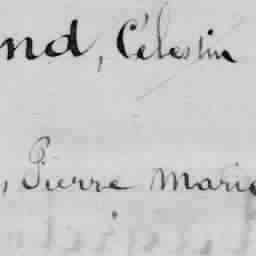 nd, Célestin
, Pierre Marie